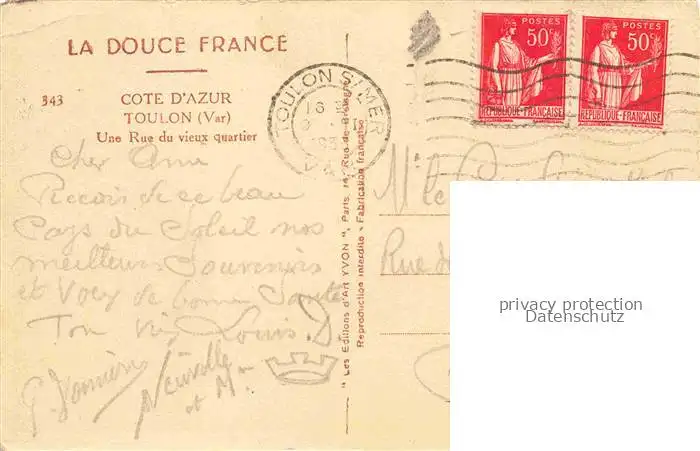 LA DOUCE FRANCE
343 COTE D'AZUR
TOULON (Var)
Une Rue du vieux quartier
Cher Ami
Recois de ce beau
Pays du Soleil nos
meilleurs Souvenirs
et Voeux de bonne Santé
Ton Louis D.
Neuville
et Mme
"Les Editions d'Art YVON", Paris, Rue de Bretagne
Reproduction interdite - Fabrication française
TOULON S/MER
16
VAR
POSTES
50c
REPUBLIQUE-FRANÇAISE
POSTES
50c
REPUBLIQUE-FRANÇAISE
Mlle
Rue
privacy protection
Datenschutz